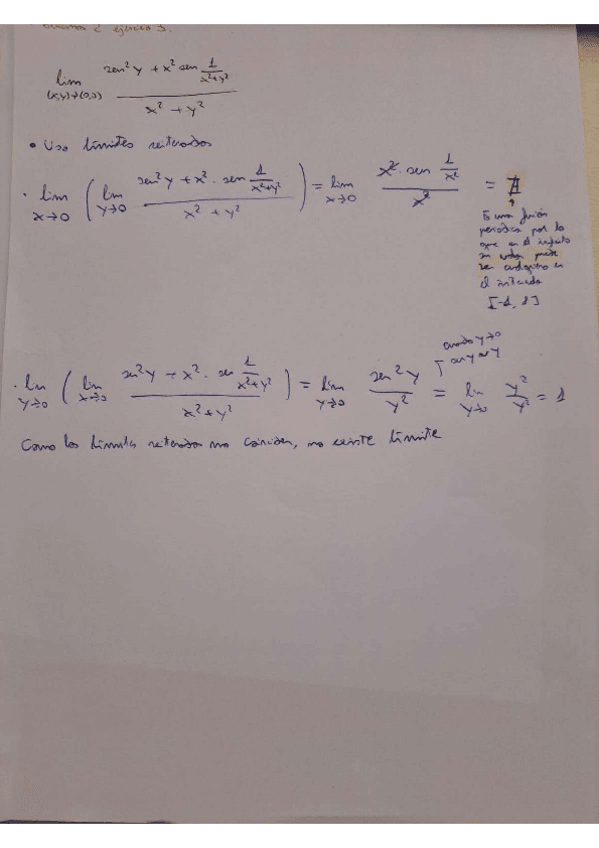 ejercicio 3.
lim (x,y)→(0,0) (sen²y + x² sen 1/(x²+y²)) / (x² + y²)
• Uso límites reiterados
· lim x→0 ( lim y→0 (sen²y + x² · sen 1/(x²+y²)) / (x² + y²) ) = lim x→0 (x² · sen 1/x²) / x² = ∄
Es una función
periódica por lo
que en el infinito
su valor puede
ser cualquiera en
el intervalo
[-1, 1]
cuando y→0
sen y ~ y
· lim y→0 ( lim x→0 (sen²y + x² · sen 1/(x²+y²)) / (x²+y²) ) = lim y→0 sen²y / y² = lim y→0 y² / y² = 1
Como los límites reiterados no coinciden, no existe límite